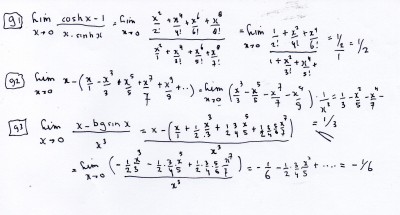 91) Lim x→0 (cosh x - 1)/(x. sinh x) = Lim x→0 (x²/2! + x⁴/4! + x⁶/6! + x⁸/8!)/(x²/1 + x⁴/3! + x⁶/5! + x⁸/7!) = Lim x→0 (1/2! + x²/4! + x⁴/6!)/(1 + x²/3! + x⁴/5! + ) = (1/2)/1 = 1/2
92) Lim x→0 x - (x/1 - x³/3 + x⁵/5 + x⁷/7 + x⁹/9 + ..) = Lim x→0 (x³/3 - x⁵/5 - x⁷/7 - x⁹/9) . 1/x³ = 1/3 - x²/5 - x⁴/7 -
= 1/3
93) Lim x→0 (x - bgsin x)/x³ = (x - (x/1 + 1/2 x³/3 + 1/2 3/4 x⁵/5 + 1/2 3/4 5/6 x⁷/7))/x³
= Lim x→0 (-1/2 x³/3 - 1/2 . 3/4 x⁵/5 + 1/2 . 3/4 . 5/6 x⁷/7)/x³ = -1/6 - 1/2 . 3/4 x²/5 + ..... = -1/6